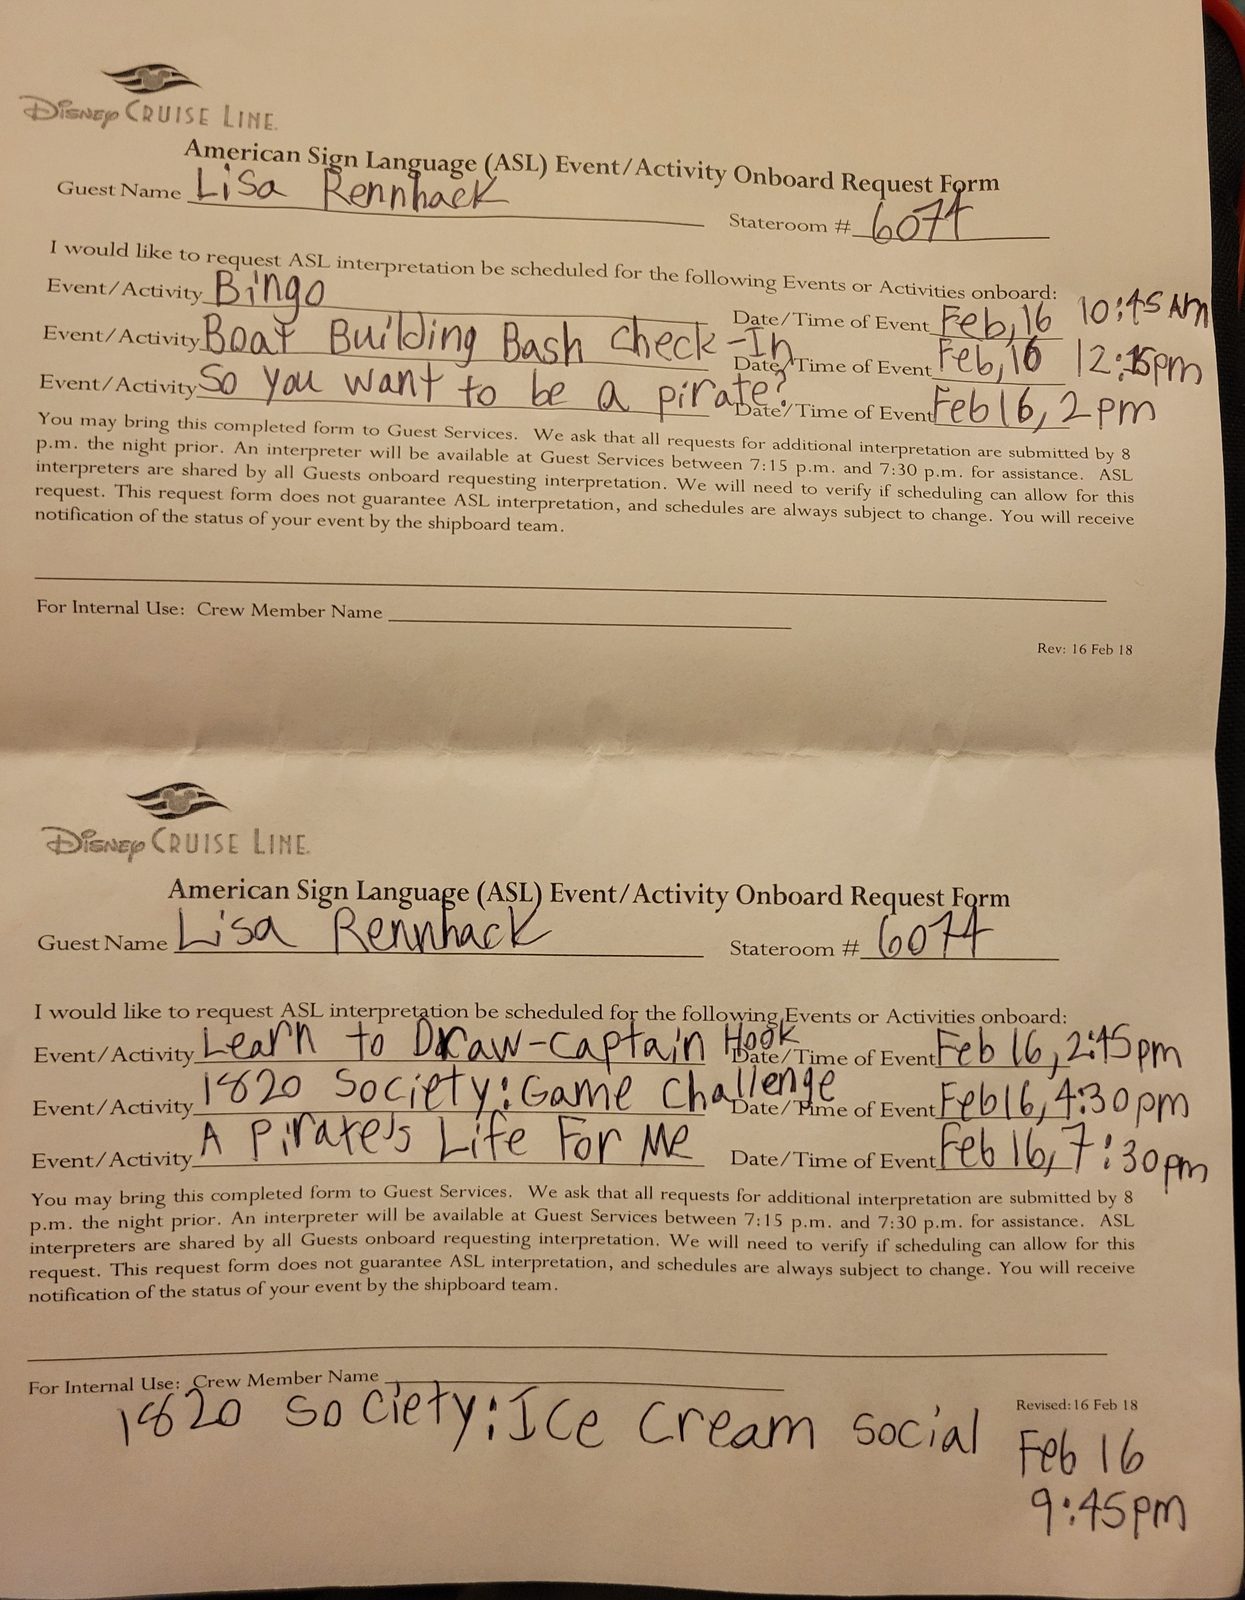 Disney Cruise Line
American Sign Language (ASL) Event/Activity Onboard Request Form
Guest Name Lisa Rennhack Stateroom # 6074
I would like to request ASL interpretation be scheduled for the following Events or Activities onboard:
Event/Activity Bingo Date/Time of Event Feb, 16 10:45 AM
Event/Activity Boat Building Bash check-In Date/Time of Event Feb, 16 12:15pm
Event/Activity So you want to be a pirate? Date/Time of Event Feb 16, 2 pm
You may bring this completed form to Guest Services. We ask that all requests for additional interpretation are submitted by 8
p.m. the night prior. An interpreter will be available at Guest Services between 7:15 p.m. and 7:30 p.m. for assistance. ASL
interpreters are shared by all Guests onboard requesting interpretation. We will need to verify if scheduling can allow for this
request. This request form does not guarantee ASL interpretation, and schedules are always subject to change. You will receive
notification of the status of your event by the shipboard team.
For Internal Use: Crew Member Name
Rev: 16 Feb 18
Disney Cruise Line
American Sign Language (ASL) Event/Activity Onboard Request Form
Guest Name Lisa Rennhack Stateroom # 6074
I would like to request ASL interpretation be scheduled for the following Events or Activities onboard:
Event/Activity Learn to Draw-Captain Hook Date/Time of Event Feb 16, 2:45pm
Event/Activity 1820 Society: Game Challenge Date/Time of Event Feb 16, 4:30pm
Event/Activity A Pirate's Life For Me Date/Time of Event Feb 16, 7:30pm
You may bring this completed form to Guest Services. We ask that all requests for additional interpretation are submitted by 8
p.m. the night prior. An interpreter will be available at Guest Services between 7:15 p.m. and 7:30 p.m. for assistance. ASL
interpreters are shared by all Guests onboard requesting interpretation. We will need to verify if scheduling can allow for this
request. This request form does not guarantee ASL interpretation, and schedules are always subject to change. You will receive
notification of the status of your event by the shipboard team.
For Internal Use: Crew Member Name
Revised: 16 Feb 18
1820 Society: Ice Cream Social Feb 16
9:45pm